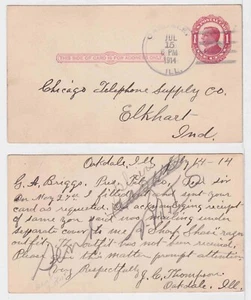 JUL
15
6 PM
1914
ILL.
1
THIS SIDE OF CARD IS FOR ADDRESS
Chicago Telephone Supply Co.
Elkhart
Ind.
Oakdale, Ill. 14-14
G. A. Briggs. Pres. Dr. Sir
On May 27th I filled and sent your
card as requested. On acknowledging receipt
of same you said you was sending under
separate cover to me a "Sharp Shoe"
outfit. The outfit has not been received.
Please give this matter prompt attention
Very Respectfully
J. C. Thompson
Oakdale, Ill.